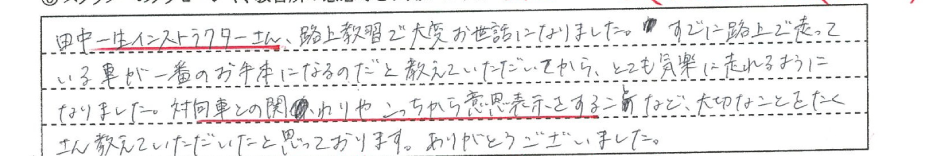 田中一生インストラクターさん、路上教習で大変お世話になりました。すでに路上で走って
いる車が一番のお手本になるのだと教えていただいてから、とても気楽に走れるように
なりました。対向車との関わりやこっちから意思表示をすることなど、大切なことをたく
さん教えていただいたと思っております。ありがとうございました。